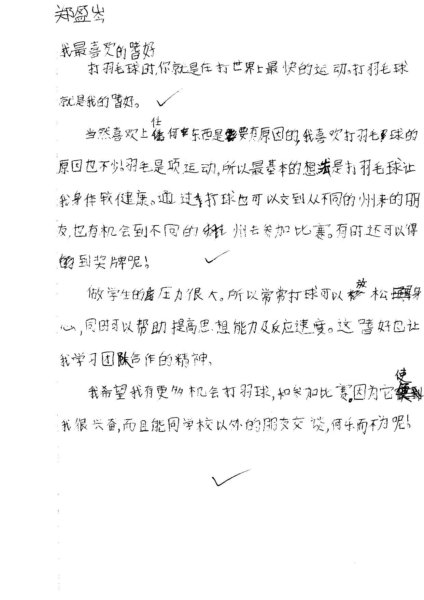 郑盈岑
我最喜欢的嗜好
打羽毛球时,你就是在打世界上最快的运动。打羽毛球
就是我的嗜好。
当然喜欢上任何东西是要有原因的,我喜欢打羽毛球的
原因也不少。羽毛是项运动,所以最基本的想法是打羽毛球让
我身体较健康。通过打球也可以交到从不同的州来的朋
友,也有机会到不同的州去参加比赛。有时还可以得
到奖牌呢!
做学生的压力很大。所以常常打球可以放松身
心,同时可以帮助提高思想能力及反应速度。这嗜好也让
我学习团队合作的精神。
我希望我有更多机会打羽球,和参加比赛。因为它使
我很兴奋,而且能同学校以外的朋友交谈,何乐而不为呢!